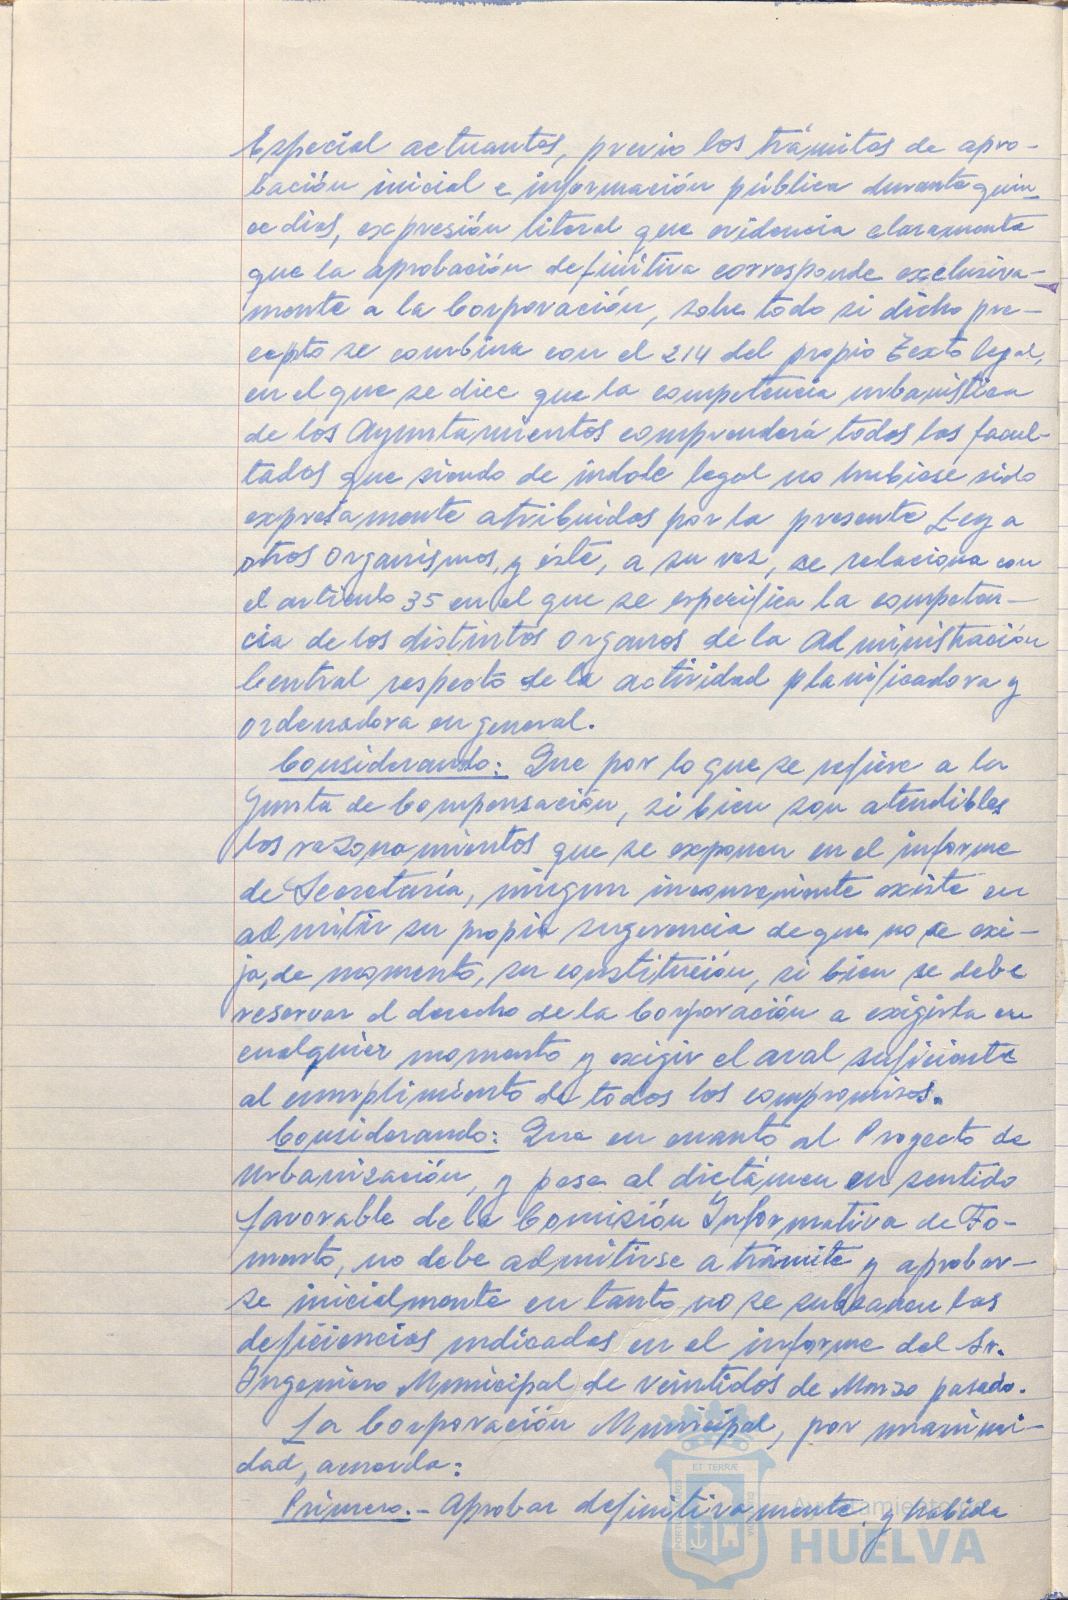 Especial actuantes, previo los trámites de apro-
bación inicial e información pública durante quin-
ce dias, expresión literal que evidencia claramente
que la aprobación definitiva corresponde exclusiva-
mente a la Corporación, sobre todo si dicho pre-
cepto se combina con el 214 del propio Texto legal,
en el que se dice que la competencia urbanística
de los Ayuntamientos comprenderá todas las facul-
tades que siendo de índole legal no hubiese sido
expresamente atribuidas por la presente Ley a
otros Organismos, y éste, a su vez, se relaciona con
el artículo 35 en el que se especifica la competen-
cia de los distintos organos de la Administración
Central respecto de la actividad planificadora y
ordenadora en general.
Considerando: Que por lo que se refiere a la
Junta de Compensación, si bien son atendibles
los razonamientos que se exponen en el informe
de Secretaría, ningun inconveniente existe en
admitir su propia sugerencia de que no se exi-
ja, de momento, su constitución, si bien se debe
reservar el derecho de la Corporación a exigirla en
cualquier momento y exigir el aval suficiente
al cumplimiento de todos los compromisos.
Considerando: Que en cuanto al Proyecto de
Urbanización, y pese al dictámen en sentido
favorable de la Comisión Informativa de Fo-
mento, no debe admitirse a trámite y aprobar-
se inicialmente en tanto no se subsanen las
deficiencias indicadas en el informe del Sr.
Ingeniero Municipal de veintidós de Marzo pasado.
La Corporación Municipal, por unanimi-
dad, acuerda:
Primero.- Aprobar definitivamente, y habida
Ayuntamiento de
HUELVA
PORTUS MARIS
ET TERRAE
CUSTODIA